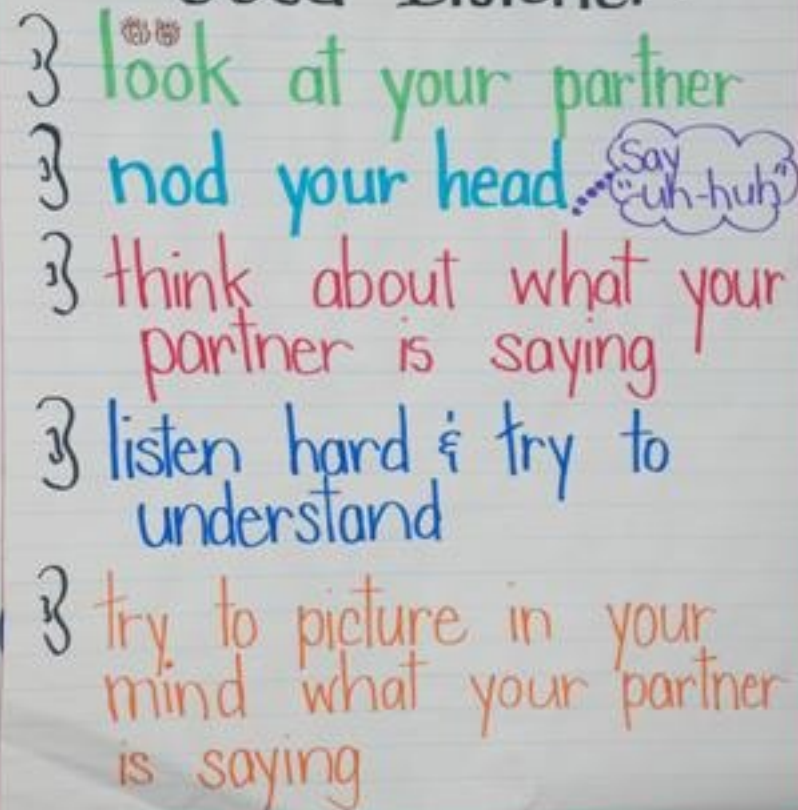 Good Listener
look at your partner
nod your head
Say
"uh-huh"
think about what your
partner is saying
listen hard & try to
understand
try to picture in your
mind what your partner
is saying